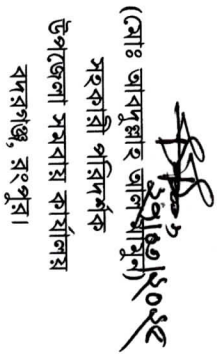 ২৭/০৩/২০১৫
(মোঃ আবদুল্লাহ আল মামুন)
সহকারী পরিদর্শক
উপজেলা সমবায় কার্যালয়
বদরগঞ্জ, রংপুর।